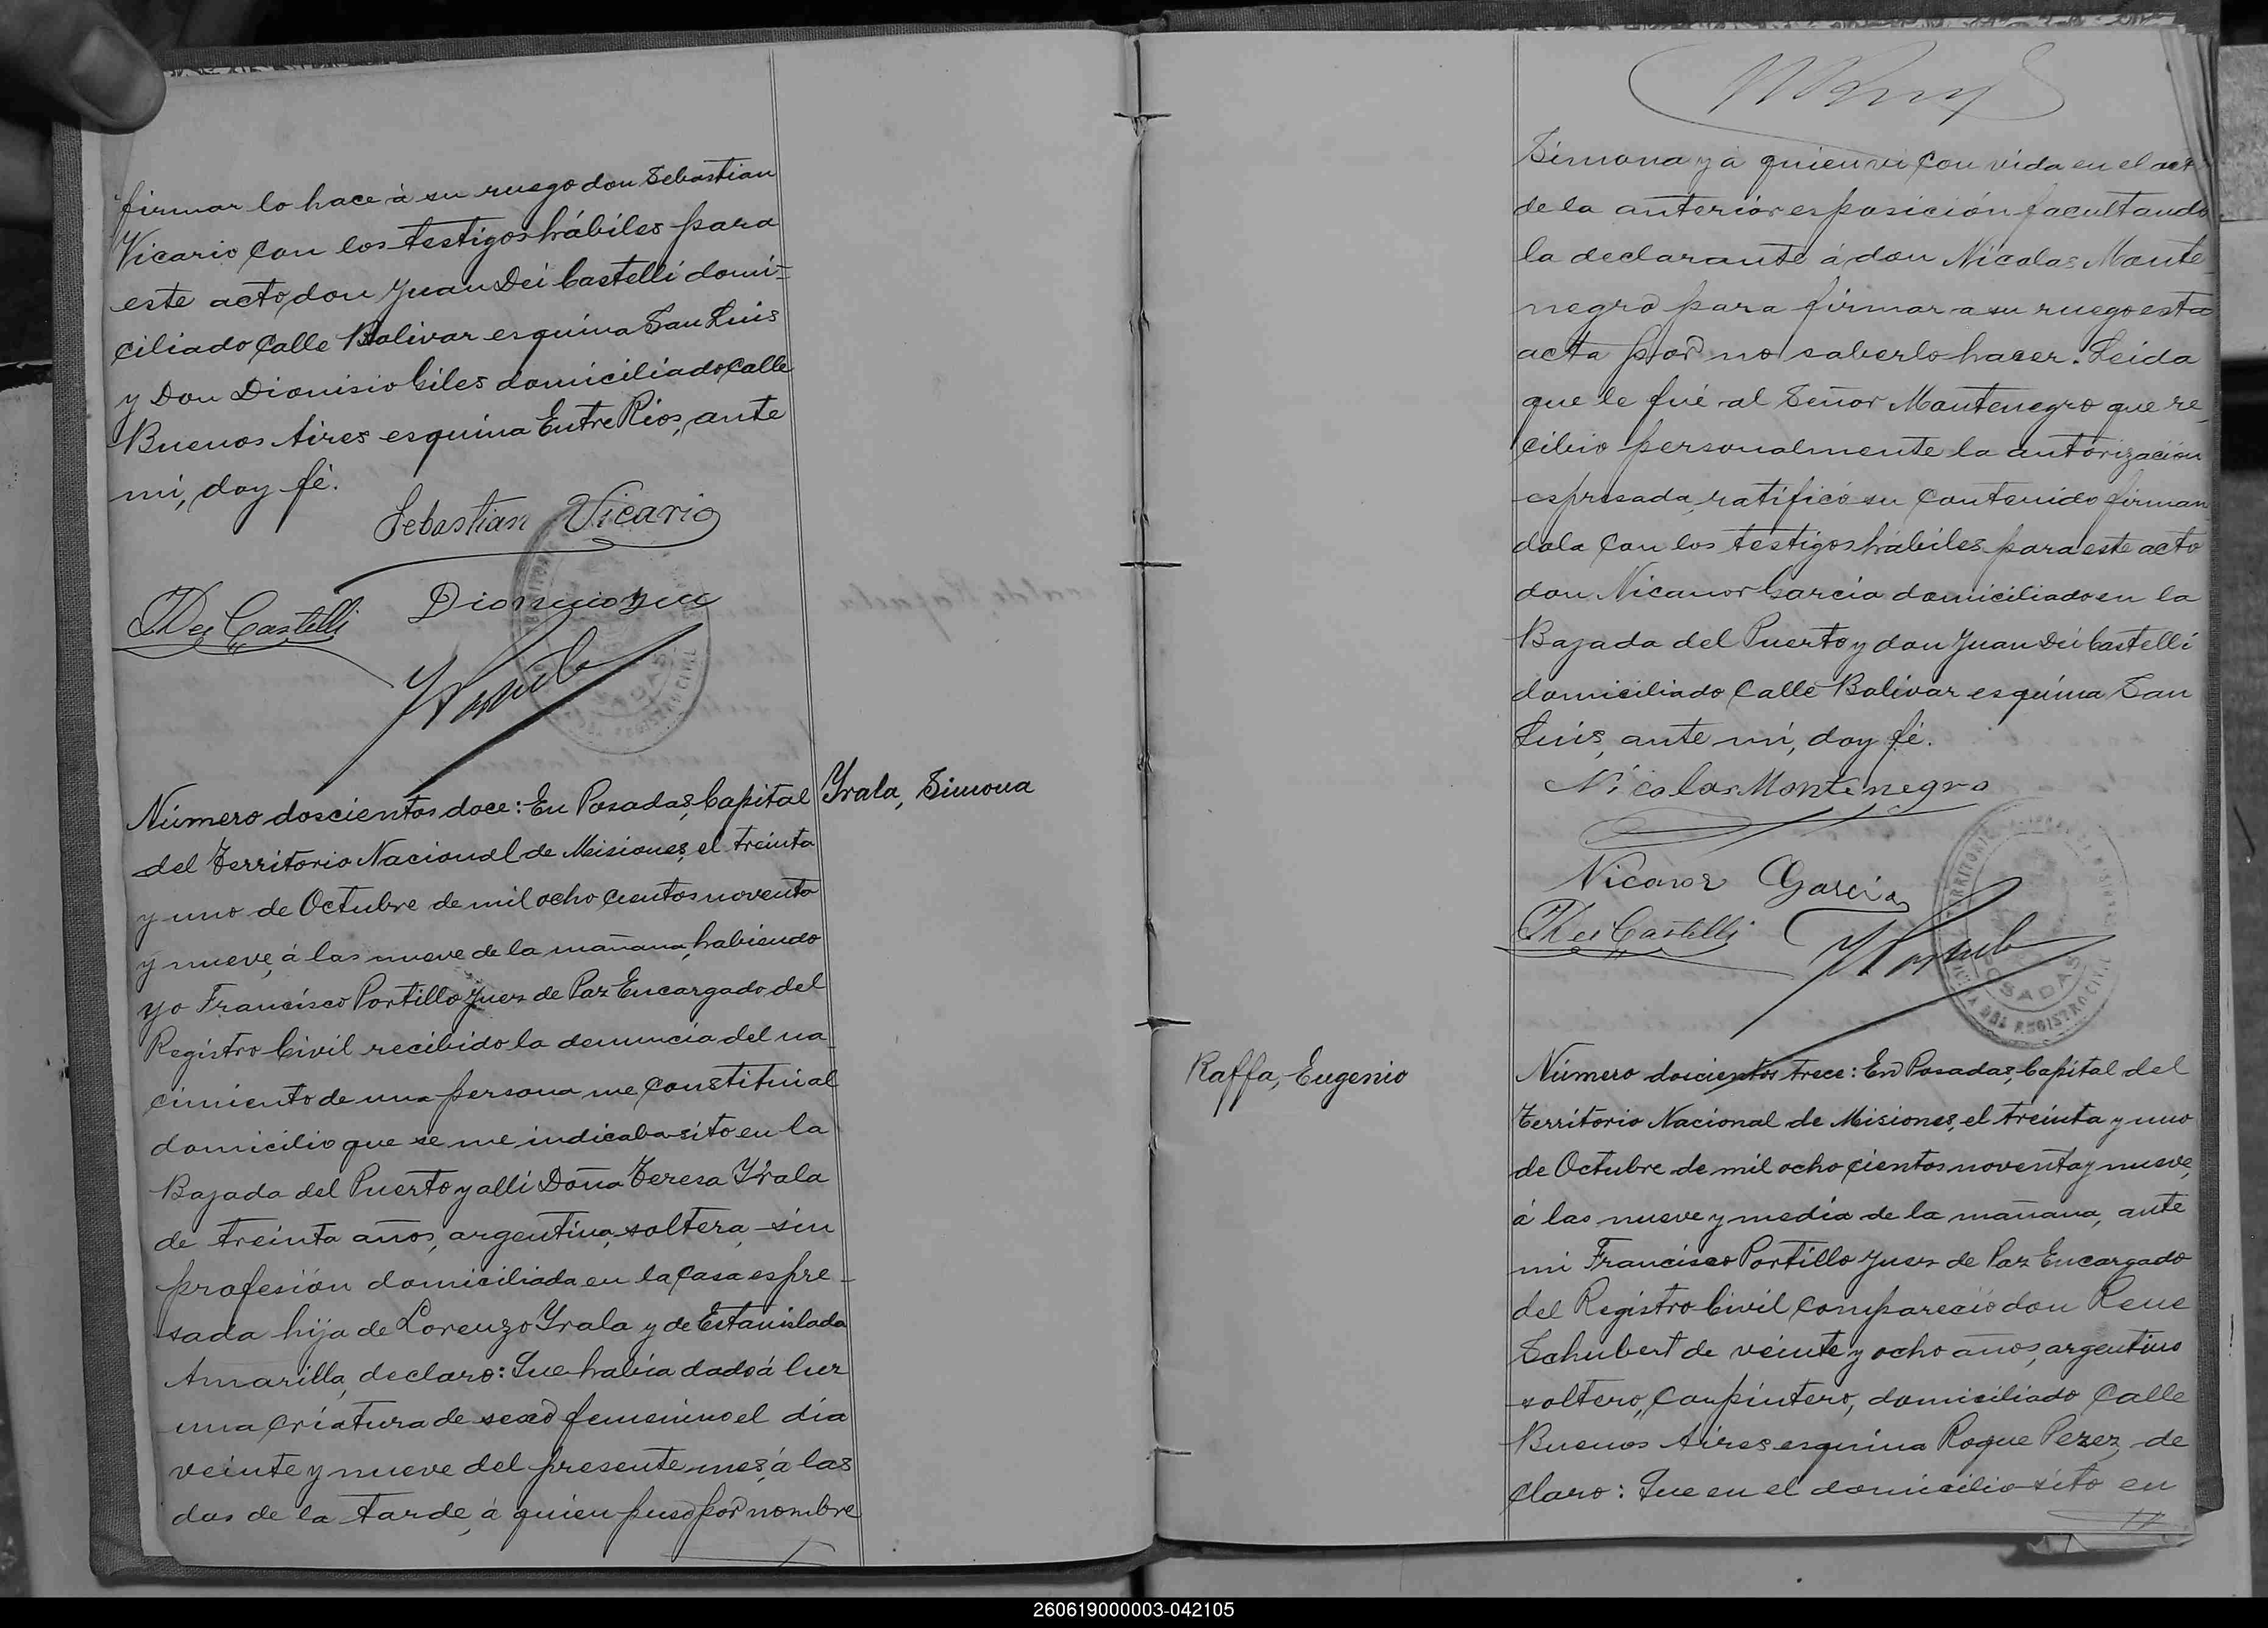 firmar lo hace à su ruego don Sebastian
Vicario con los testigos hábiles para
este acto, don Juan Dei Castelli domi-
ciliado Calle Bolivar esquina San Luis
y Don Dionisio Giles domiciliado calle
Buenos Aires esquina Entre Rios, ante
mi, doy fé.
Sebastian Vicario
JDei Castelli
Número doscientos doce: En Posadas, Capital
del Territorio Nacional de Misiones, el treinta
y uno de Octubre de mil ocho cientos noventa
y nueve, á las nueve de la mañana, habiendo
yo Francisco Portillo Juez de Paz Encargado del
Registro Civil recibido la denuncia del na-
cimiento de una persona me constitui al
domicilio que se me indicaba sito en la
Bajada del Puerto y alli Doña Teresa Yrala
de treinta años, argentina, soltera, sin
profesión domiciliada en la casa espre-
sada hija de Lorenzo Yrala y de Estanislada
Amarilla, declaro: Que habia dado á luz
una criatura de sexo femenino el dia
veinte y nueve del presente mes, á las
dos de la tarde, á quien puso por nombre
Yrala, Simona
Simona y á quien vi con vida en el act
de la anterior esposición facultando
la declarante á don Nicolas Monte-
negro para firmar a su ruego esta
acta por no saberlo hacer. Leida
que le fué al Señor Montenegro que re-
cibio personalmente la autorización
espresada, ratificó su contenido firman-
dola con los testigos hábiles para este acto
don Nicanor Garcia domiciliado en la
Bajada del Puerto y don Juan Dei Castelli
domiciliado Calle Bolivar esquina San
Luis, ante mi, doy fé.
Nicolas Montenegro
Nicanor Garcia
JDei Castelli
POSADAS
DEL REGISTRO CIVIL
Raffa, Eugenio
Número doscientos trece: En Posadas, Capital del
Territorio Nacional de Misiones, el treinta y uno
de Octubre de mil ocho cientos noventa y nueve,
á las nueve y media de la mañana, ante
mi Francisco Portillo Juez de Paz Encargado
del Registro Civil compareció don Rene
Schubert de veinte y ocho años, argentino
soltero, carpintero, domiciliado Calle
Buenos Aires esquina Roque Perez, de
claro: Que en el domicilio sito en
260619000003-042105